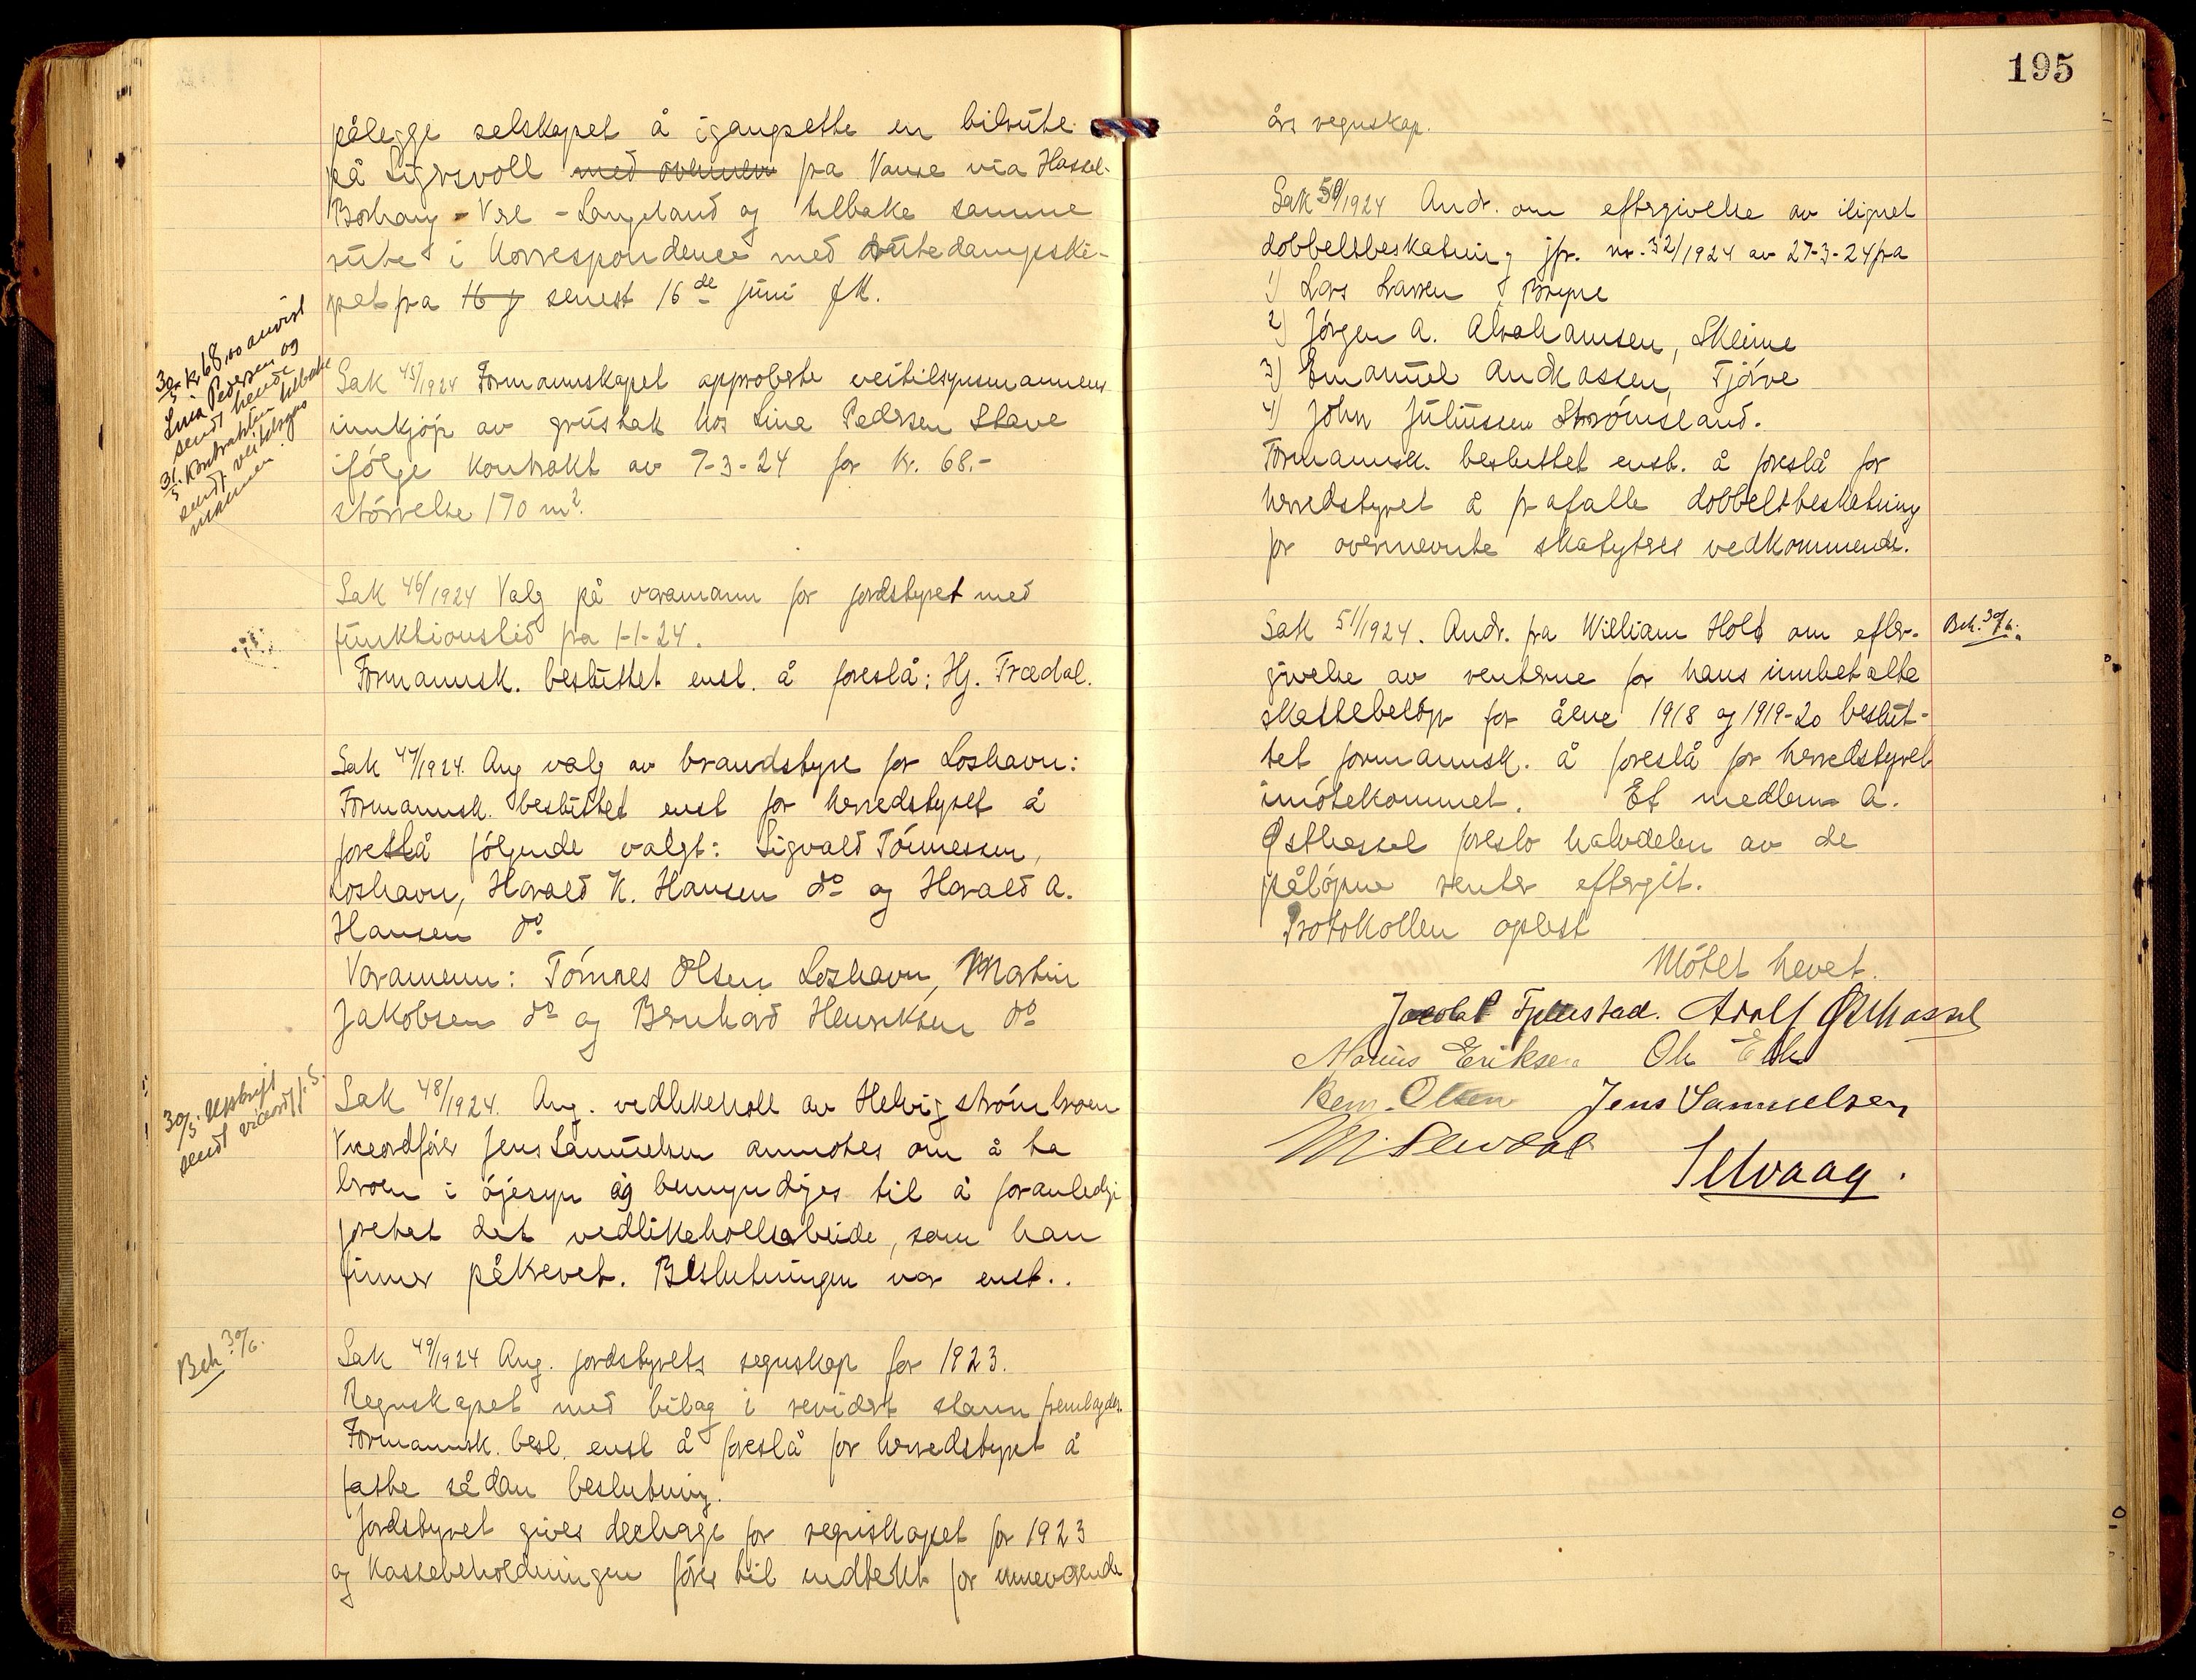 pålegge selskapet å igangsette en bilrute
på Sigersvoll med ovennev fra Vanse via Hassel-
Borhaug - Vere - Langeland og tilbake samme
rute i korrespondence med rutedampski-
pet fra 16 j senest 16de juni f.k.
30/5 kr 68,00 anvist
Lina Pedersen og
sendt hende
31/5 kontrakten tilbake
sendt veitilsyns
mannen.
Sak 45/1924 Formannskapet approberte veitilsynsmannens
innkjøp av grustak hos Line Pedersen Stave
ifølge kontrakt av 7-3-24 for kr. 68.-
størrelse 170 m².
Sak 46/1924 Valg på varamann for jordstyret med
funktionstid fra 1-1-24.
Formannsk. besluttet enst. å foreslå: Hj. Trædal.
Sak 47/1924. Ang valg av brandstyre for Loshavn:
Formannsk. besluttet enst for herredstyret å
foreslå følgende valgt: Sigvald Tønnessen,
Loshavn, Harald K. Hansen do og Harald A.
Hansen do
Varamenn: Tønnes Olsen Loshavn, Martin
Jakobsen do og Bernhard Henriksen do
30/5. Utskrift
sendt viceordf. J. S.
Sak 48/1924. Ang. vedlikeholl av Helvigstrømbroen
Viceordfører Jens Samuelsen anmodes om å ta
broen i øiesyn og bemyndiges til å foranledige
foretet det vedlikehollsarbeide, som han
finner påkrevet. Beslutningen var enst..
Beh 30/6.
Sak 49/1924 Ang. jordstyrets regnskap for 1923.
Regnskapet med bilag i revidert stann fremlagdes.
Formannsk. besl. enst å foreslå for herredstyret å
fatte sådan beslutning.
Jordstyret gives decharge for regnskapet for 1923
og kassebeholdningen føres til indtekt for inneværende
195
års regnskap.
Sak 50/1924 Andr. om eftergivelse av ilignet
dobbeltbeskatning jfr. nr. 32/1924 av 27-3-24 fra
1) Lars Larsen Bryne
2) Jørgen A. Abrahamsen, Skeime
3) Emanuel Andreassen, Tjørve
4) John Juliussen Strømsland.
Formannsk. besluttet enst. å foreslå for
herredstyret å frafalle dobbeltbeskatning
for ovennevnte skatyteres vedkommende.
Sak 51/1924. Andr. fra William Holt om efter-
Beh. 30/6.
givelse av renterne for hans innbetalte
skattebeløp for årene 1918 og 1919-20 beslut-
tet formannsk. å foreslå for herredstyret
imøtekommet. Et medlem A.
Østhassel foreslo halvdelen av de
påløpne renter eftergit.
Protokollen oplest
Møtet hevet.
Jacob Fjellestad. Adolf Østhassel
Marius Eriksen Ole
Bern. Olsen Jens Samuelsen
Selvaag.